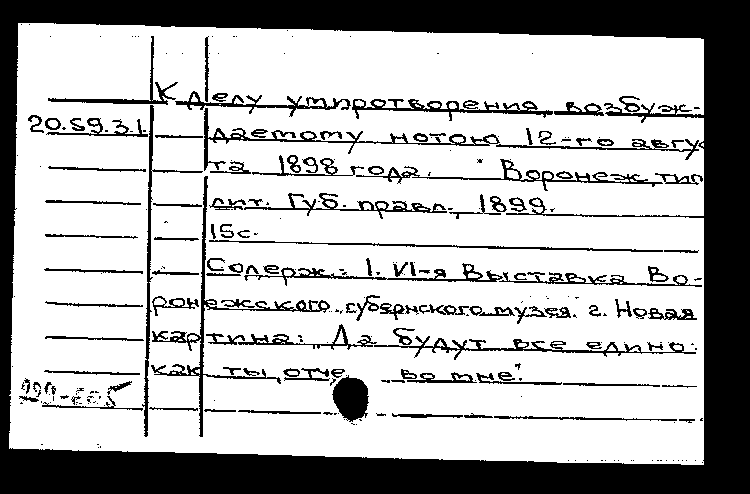 К делу умиротворения, возбуж-
20.59.3.1. даемому нотою 12-го авгус
та 1898 года. Воронеж, тип
лит. Губ. правл., 1899.
15с.
Содерж.: 1. VI-я Выставка Во-
ронежского губернского музея. 2. Новая
картина: "Да будут все едино:
как ты, отче во мне".